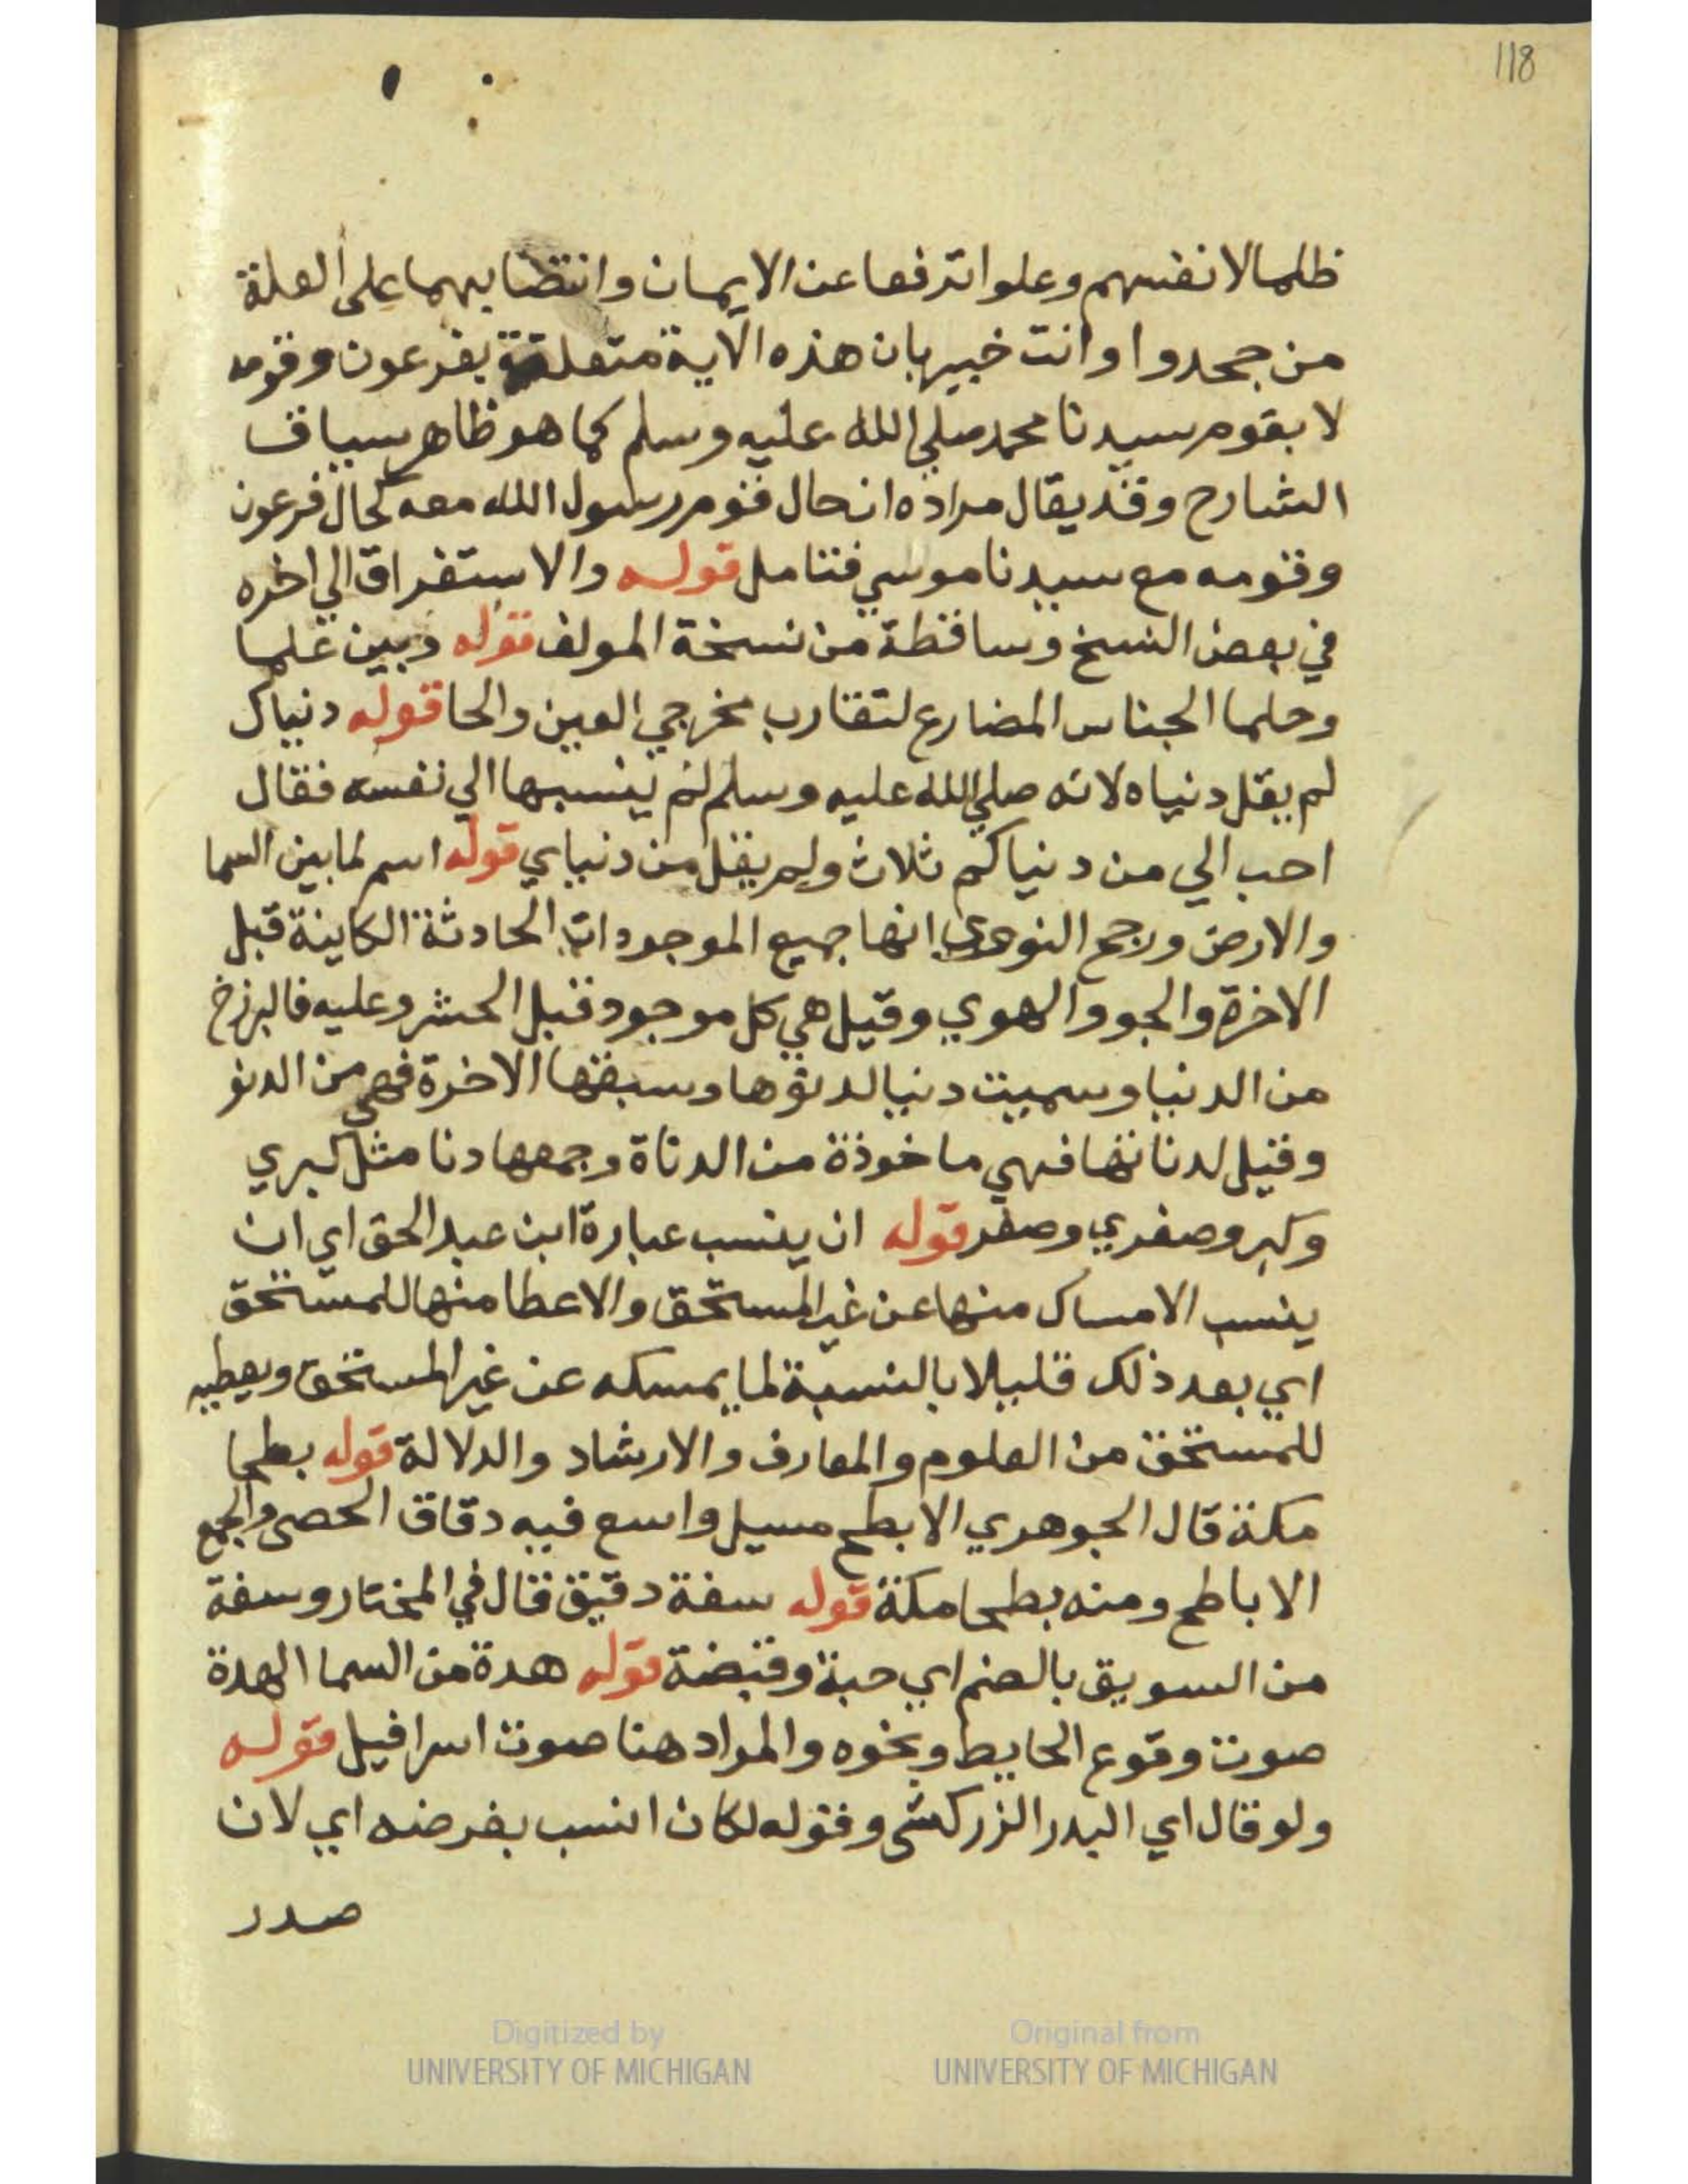 118
ظلما لانفسهم وعلوا ترفعا عن الايمان وانتضابهما على العلة
من جحدوا وانت خبير بان هذه الاية متعلقة بفرعون وقومه
لا بقوم سيدنا محمد صلي الله عليه وسلم كما هو ظاهر سياق
الشارح وقد يقال مراده ان حال قوم رسول الله معه كحال فرعون
وقومه مع سيدنا موسي فتامل قوله والاستغراق الي اخره
في بعض النسخ وساقطة من نسخة المولف قوله وبين علما
وحلما الجناس المضارع لتقارب مخرجي العين والحا قوله دنياك
لم يقل دنياه لانه صلي الله عليه وسلم لم ينسبها الي نفسه فقال
احب الي من دنياكم ثلاث ولم يقل من دنياي قوله اسم لما بين السما
والارض ورجح النووي انها جميع الموجودات الحادثة الكاينة قبل
الاخرة والجو والهوي وقيل هي كل موجود قبل الحشر وعليه فالبرزخ
من الدنيا وسميت دنيا لدنوها وسبقها الاخرة فهي من الدنو
وقيل لدنائتها فهي ماخوذة من الدناة وجمعها دنا مثل كبري
وكبر وصغري وصغر قوله ان ينسب عبارة ابن عبد الحق اي ان
ينسب الامساك منها عن غير المستحق والاعطا منها للمستحق
اي بعد ذلك قليلا بالنسبة لما يمسكه عن غير المستحق ويعطيه
للمستحق من العلوم والمعارف والارشاد والدلالة قوله بطحا
مكة قال الجوهري الابطح مسيل واسع فيه دقاق الحصي والجمع
الاباطح ومنه بطحا مكة قوله سفة دقيق قال في المختار وسفة
من السويق بالضم اي حبة وقبضة قوله هدة من السما الهدة
صوت وقوع الحايط ونحوه والمراد هنا صوت اسرافيل قوله
ولو قال اي البدر الزركشي وقوله لكان انسب بغرضه اي لان
صدر
Digitized by
UNIVERSITY OF MICHIGAN
Original from
UNIVERSITY OF MICHIGAN